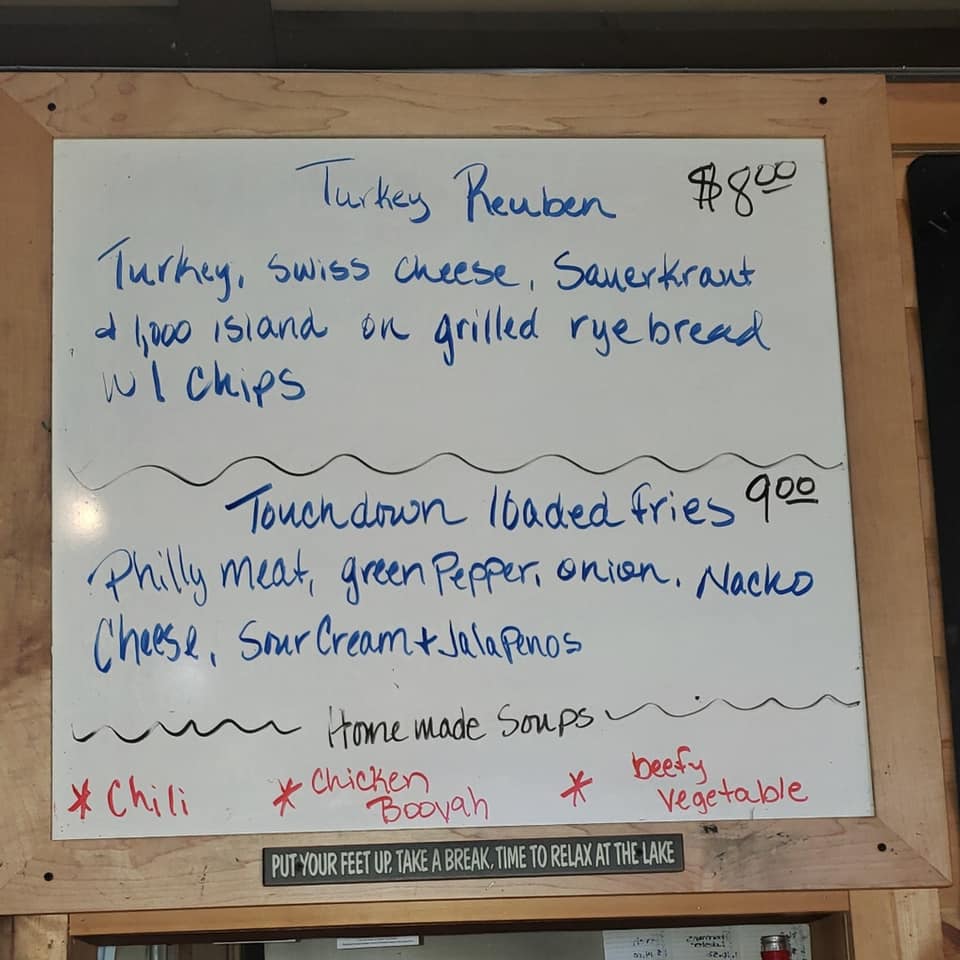 Turkey Reuben $8.00
Turkey, Swiss Cheese, Sauerkraut
& 1,000 island on grilled rye bread
w/ Chips
Touchdown loaded fries 9.00
Philly meat, green Pepper, onion, Nacho
Cheese, Sour Cream + Jalapenos
Homemade Soups
* Chili * Chicken Booyah * beefy vegetable
PUT YOUR FEET UP, TAKE A BREAK, TIME TO RELAX AT THE LAKE